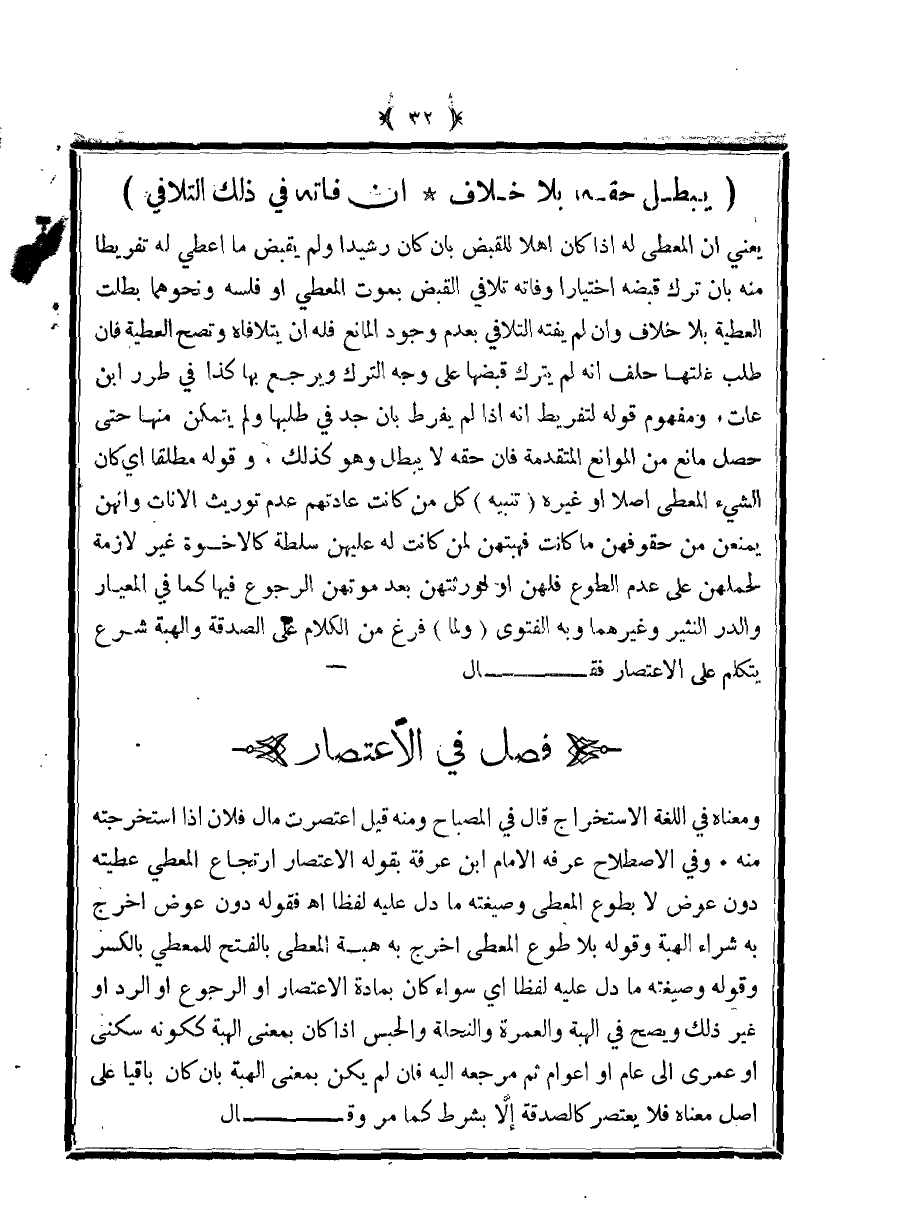 ﴿ ٣٢ ﴾
( يبطل حقه بلا خلاف * ان فاته في ذلك التلافي )
يعني ان المعطى له اذا كان اهلا للقبض بان كان رشيدا ولم يقبض ما اعطي له تفريطا
منه بان ترك قبضه اختيارا وفاته تلافي القبض بموت المعطي او فلسه ونحوهما بطلت
العطية بلا خلاف وان لم يفته التلافي بعدم وجود المانع فله ان يتلافاه وتصح العطية فان
طلب غلتها حلف انه لم يترك قبضها على وجه الترك ويرجع بها كذا في طرر ابن
عات، ومفهوم قوله لتفريط انه اذا لم يفرط بان جد في طلبها ولم يتمكن منها حتى
حصل مانع من الموانع المتقدمة فان حقه لا يبطل وهو كذلك . و قوله مطلقا اي كان
الشيء المعطى اصلا او غيره ( تنبيه ) كل من كانت عادتهم عدم توريث الاناث وانهن
يمنعن من حقوقهن ما كانت فهبتهن لمن كانت له عليهن سلطة كالاخوة غير لازمة
لحملهن على عدم الطوع فلهن او لورثتهن بعد موتهن الرجوع فيها كما في المعيار
والدر النثير وغيرهما وبه الفتوى ( ولما ) فرغ من الكلام على الصدقة والهبة شرع
يتكلم على الاعتصار فقــــــال
فصل في الاعتصار
ومعناه في اللغة الاستخراج قال في المصباح ومنه قيل اعتصرت مال فلان اذا استخرجته
منه . وفي الاصطلاح عرفه الامام ابن عرفة بقوله الاعتصار ارتجاع المعطي عطيته
دون عوض لا بطوع المعطى وصيغته ما دل عليه لفظا اه فقوله دون عوض اخرج
به شراء الهبة وقوله بلا طوع المعطى اخرج به هبة المعطى بالفتح للمعطي بالكسر
وقوله وصيغته ما دل عليه لفظا اي سواء كان بمادة الاعتصار او الرجوع او الرد او
غير ذلك ويصح في الهبة والعمرة والنحلة والحبس اذا كان بمعنى الهبة ككونه سكنى
او عمرى الى عام او اعوام ثم مرجعه اليه فان لم يكن بمعنى الهبة بان كان باقيا على
اصل معناه فلا يعتصر كالصدقة إلّا بشرط كما مر وقــــــال